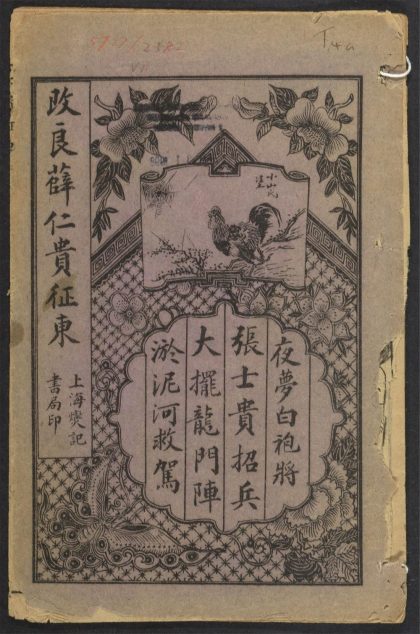 T4a
改良薛仁貴征東
上海燮記
書局印
小山民
夜夢白袍將
張士貴招兵
大擺龍門陣
淤泥河救駕